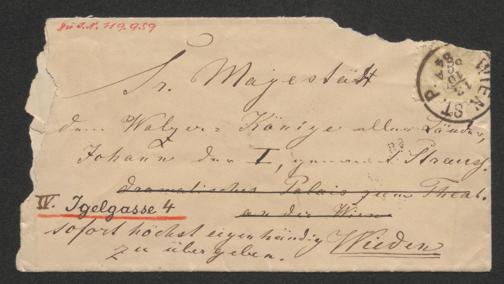 Zu I.N. 119.959
WIEN ST. P.
Sr. Majestädt
dem Walzer-Könige aller Länder,
Johann der I, genannt Strauß.
dramatisches Palais zum Theat.
an der Wien
IV. Igelgasse 4
sofort höchst eigenhändig Wieden
zu übergeben.